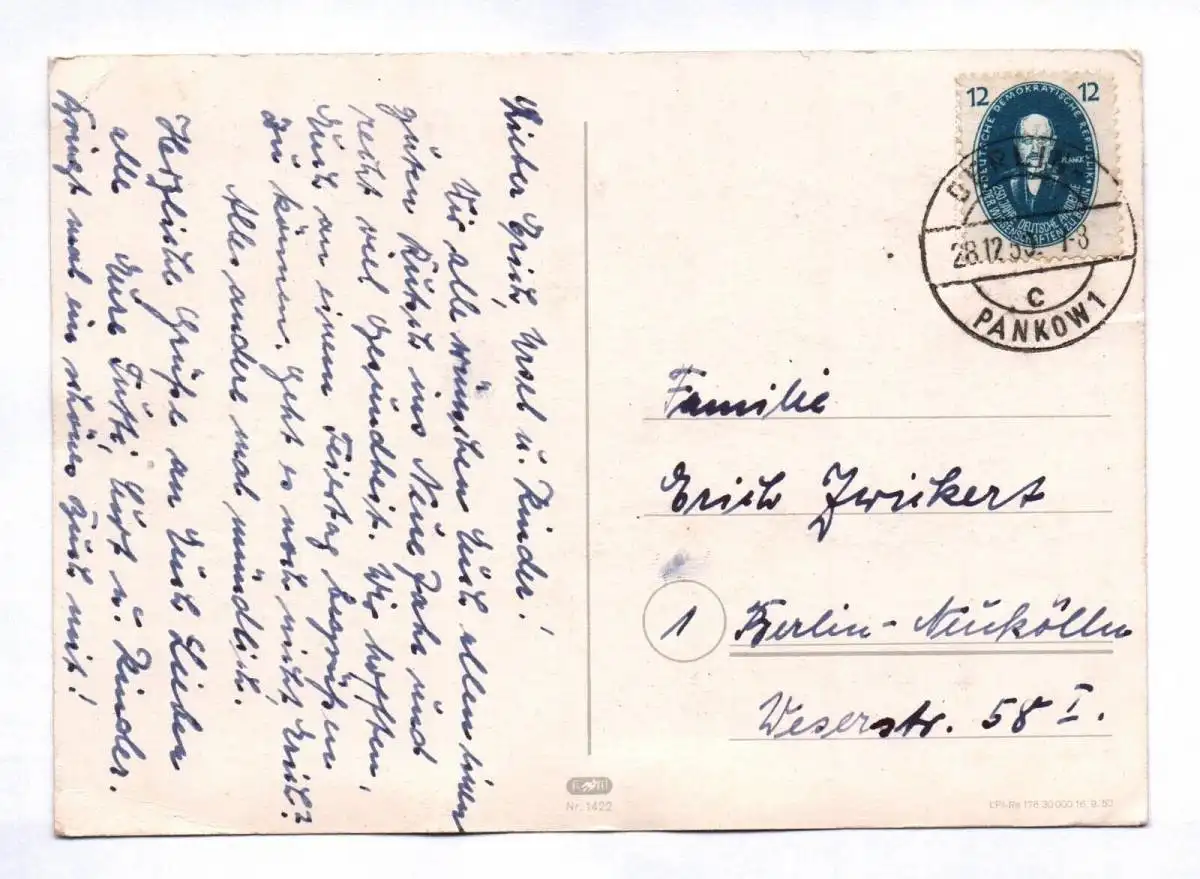 Lieber Erich, Ursel u. Kinder!
Wir alle wünschen Euch allen einen
guten Rutsch ins Neue Jahr und
recht viel Gesundheit. Wir hofften,
Euch an einem Feiertag begrüßen
zu können. Geht es noch nicht, Erich?
Alles andere mal mündlich.
Herzliche Grüße an Euch Lieben
alle Eure Kurt u. Kinder.
Bringt mal ein schönes mit!
12 12
DEUTSCHE DEMOKRATISCHE REPUBLIK
PLANCK
250 JAHRE DEUTSCHE AKADEMIE
DER WISSENSCHAFTEN ZU BERLIN
BERLIN
28.12.50 7-8
c
PANKOW 1
Familie
Erich Zwickert
1 Berlin-Neukölln
Weserstr. 58 I.
Nr. 1422
LPI-Re 178 30 000 16. 9. 50